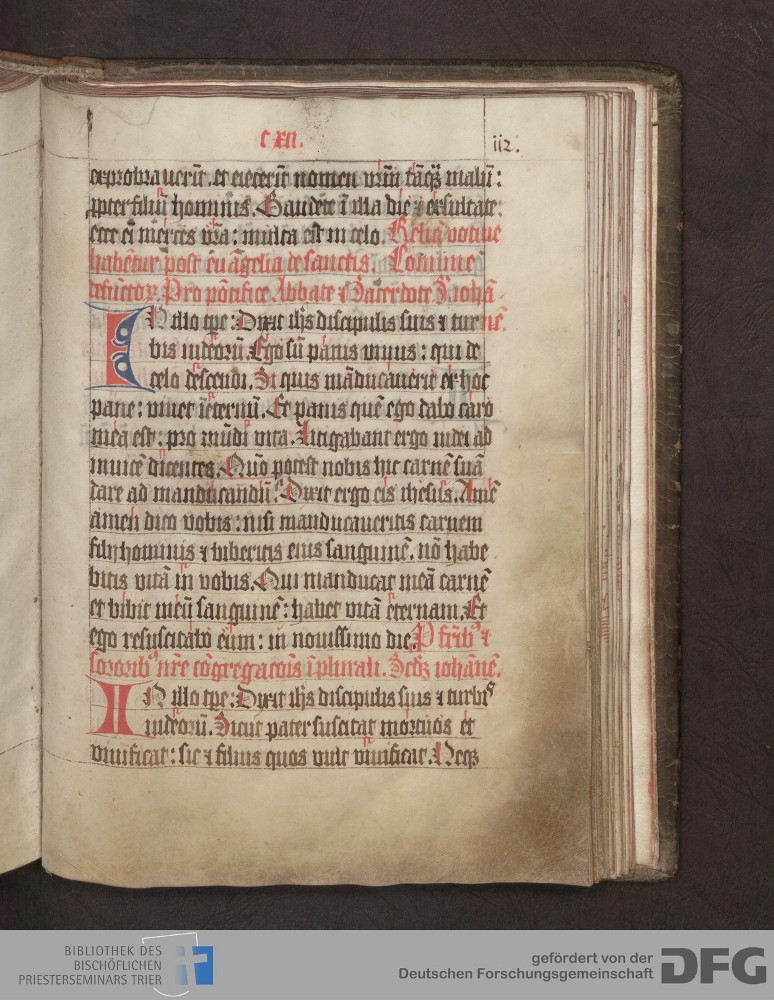 C XII.
112.
exprobrauerīt. et eiecerīt nomen vr̄m̄ tāqꝫ malū:
ꝓpter filiū hominis. Gaudete ī illa die ⁊ exultate:
ecce eī merces vr̄a: multa est in celo. Reliq̄ votiue
habentur post euāgelia de sanctis. Comune
defūctoꝝ. Pro pōtifice. Abbate ⁊ Sacerdote. S. iohā-
nē.
IN illo tp̄e: Dixit ih̄s discipulis suis ⁊ tur-
bis iudeoꝝ. Ego sū panis viuus: qui de
celo descendi. Si quis māducauerit ex hoc
pane: viuet ī eternū. Et panis quē ego dabo caro
mea est: pro mūdi vita. Litigabant ergo iudei ad
inuicē dicentes. Quō potest nobis hic carnē suā
dare ad manducandū? Dixit ergo eis ihesus. Amē
amen dico vobis: nisi manducaueritis carnem
filii hominis ⁊ biberitis eius sanguinē. nō habe-
bitis vitā in vobis. Qui manducat meā carnē
et bibit meū sanguinē: habet vitā eternam. Et
ego resuscitabo eum: in nouissimo die. P fr̄ibꝰ ⁊
sororibꝰ nr̄e cōgregacōis ī plurali. Scdꝫ iohānē.
IN illo tp̄e: Dixit ih̄s discipulis suis ⁊ turbꝭ
iudeoꝝ. Sicut pater suscitat mortuos et
viuificat: sic ⁊ filius quos vult viuificat. Neqꝫ
BIBLIOTHEK DES
BISCHÖFLICHEN
PRIESTERSEMINARS TRIER
gefördert von der
Deutschen Forschungsgemeinschaft
DFG